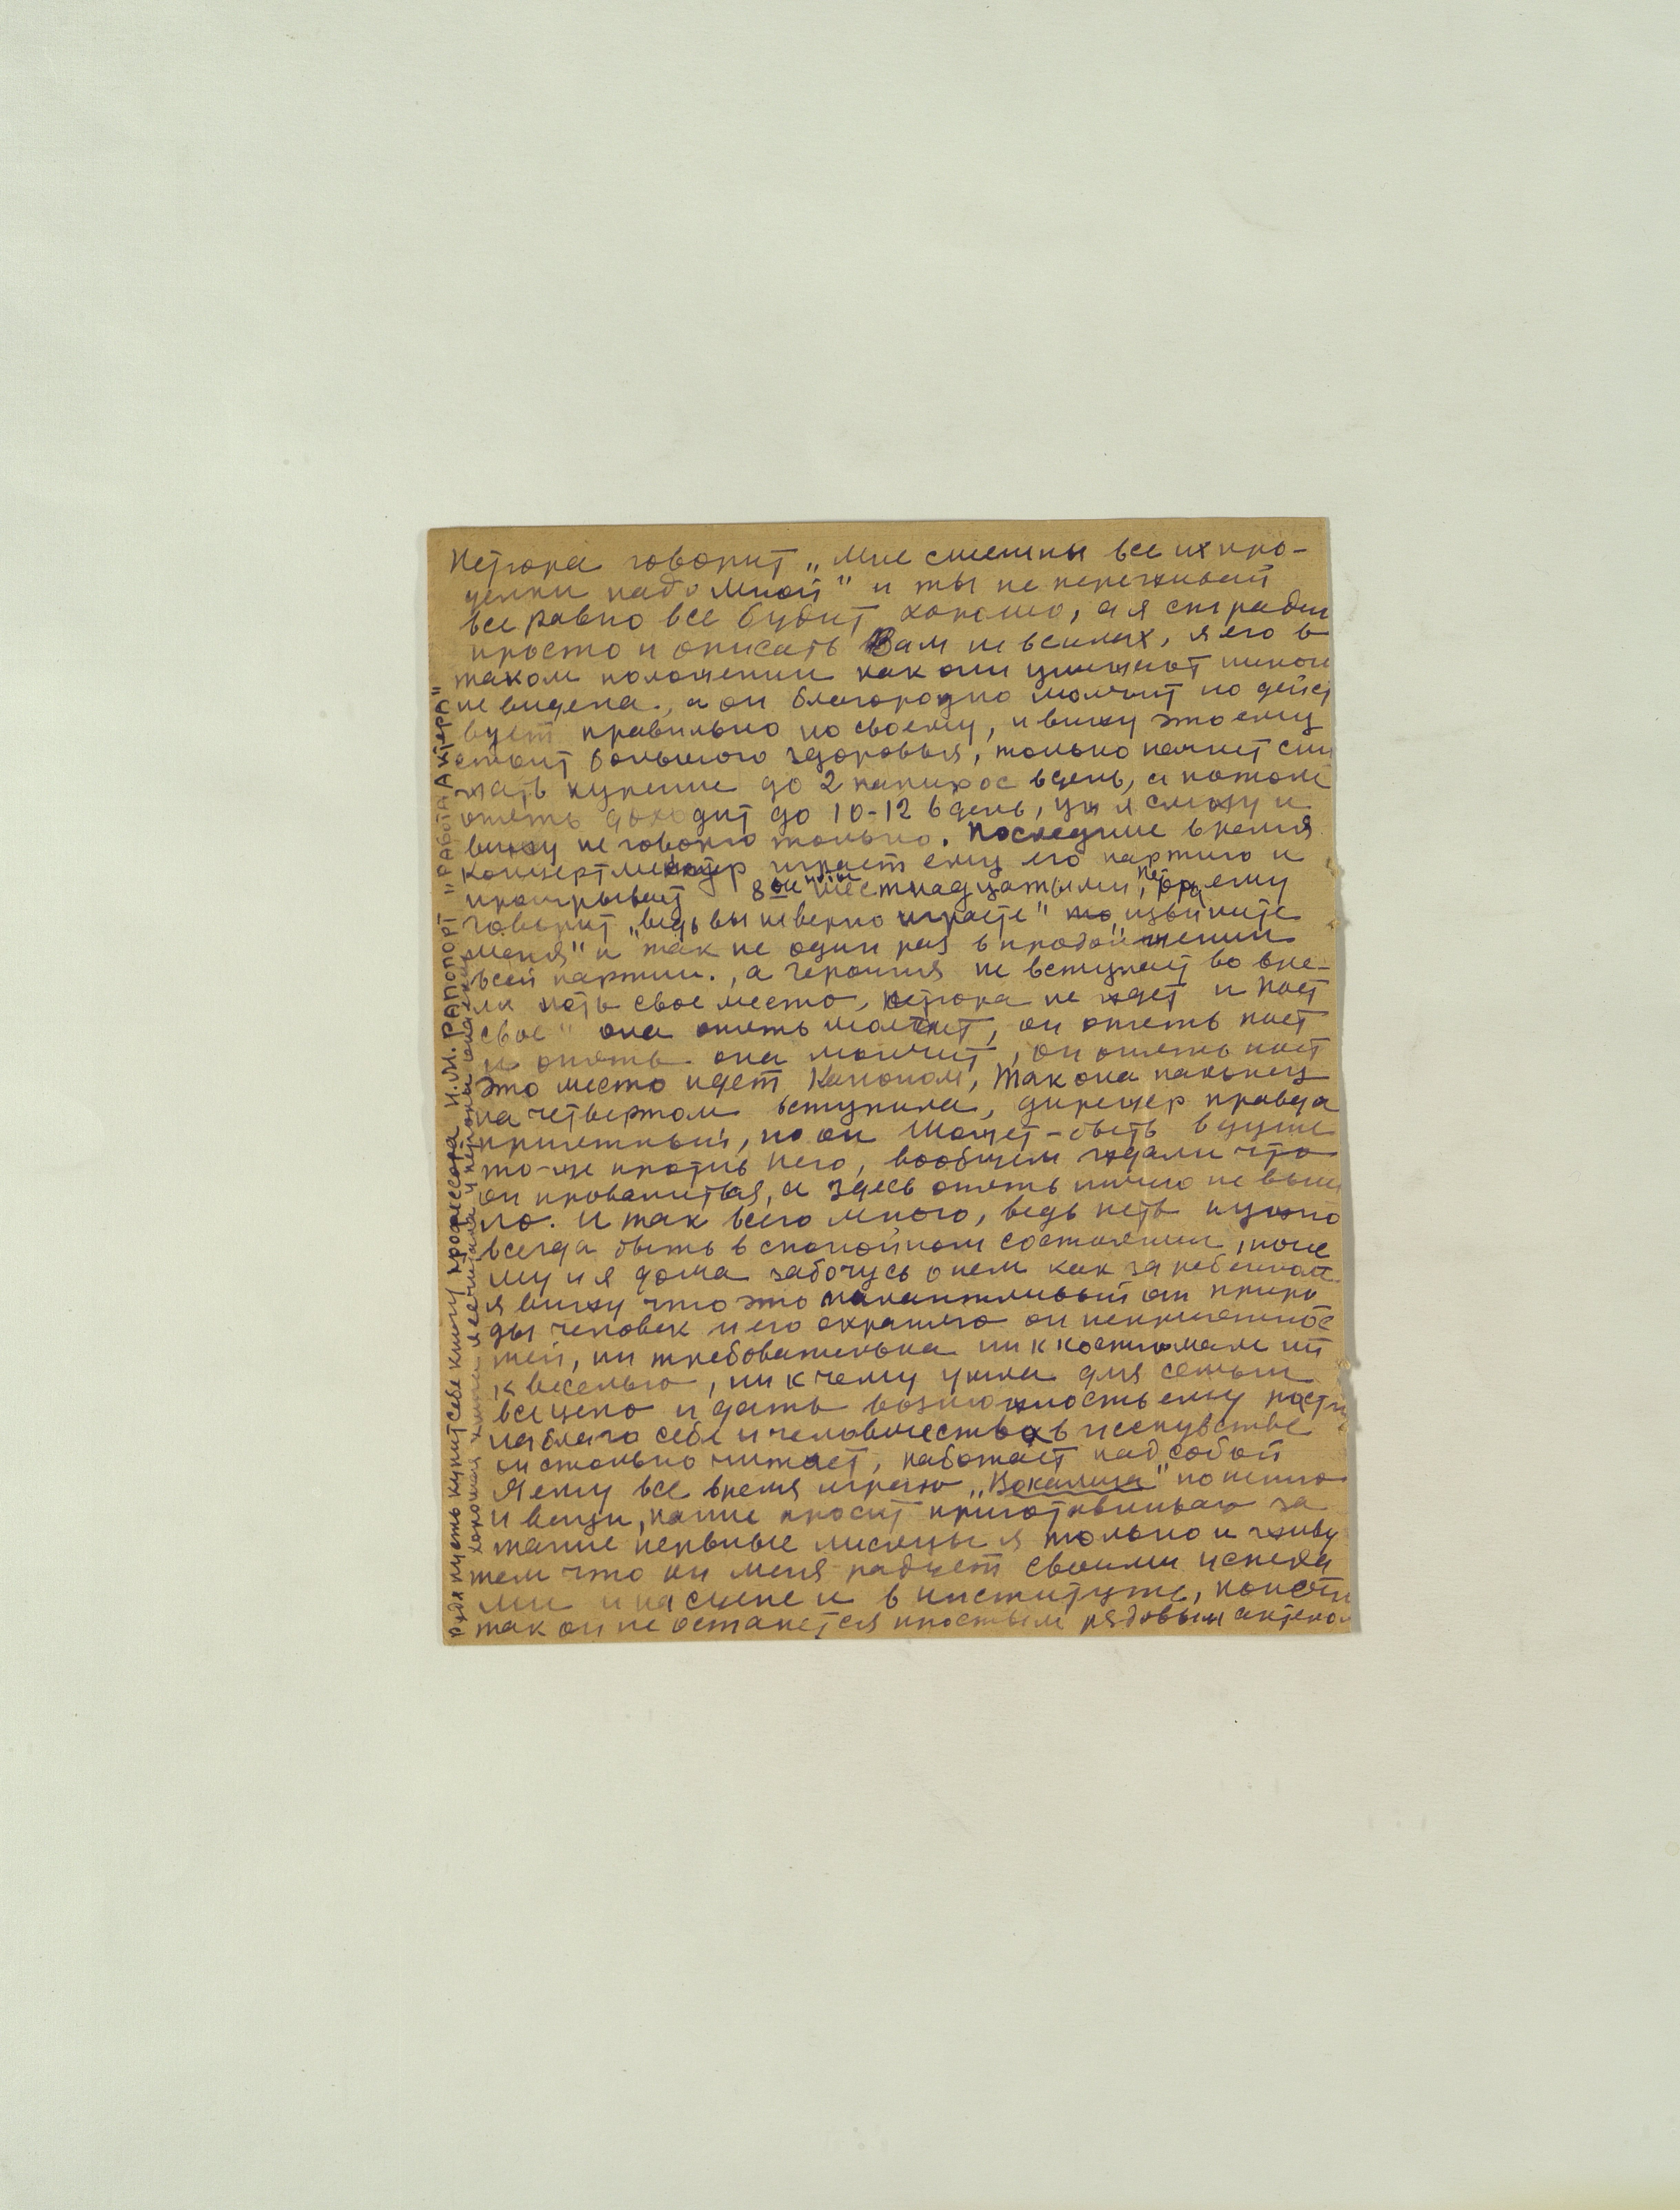 Петюра говорит „мне смешны все их про-
делки надо мной" и ты не переживай
все равно все будит хорошо, а я страдаю
просто и описать Вам не в силах, я его в
таком положении как они унижают никог
не видела, а он благородно молчит но дейст
вует правильно по своему, и вижу это ему
стоит большого здоровья, только начнет сни
жать курение до 2 папирос в день, а потом
опять доходит до 10-12 в день, уж я слежу и
вижу не говорю только. Последние время
концертмейстер играет ему его партию и
проигрывает 8ые шестнадцатыми, Петюра ему
говорит „ведь вы неверно играете" то „извините
меня" и так не один раз в продолжении
всей партии., а героиня не вступает во вре-
мя петь свое место, Петюра не ждет и поет
свое" она опять молчит, он опять поет
и опять она молчит, он опять поет
это место идет Каноном, так она наконец
на четвертом вступила, дирежер правда
приятный, но он может-быть в душе
то-же против него, вообщем ждали что
он провалится, а здесь опять ничего не выш
ло. И так всего много, ведь петь нужно
всегда быть в спокойном состоянии, поче
му и я дома забочусь о нем как за ребенком
я вижу что это талантливый от приро
ды человек и его охраняю от неприятнос
тей, ни требовательна ни к костюмам ни
к веселью, ни к чему ушла для семьи
всецело и дать возможность ему расти
на благо себе и человечества в исскувстве
он столько читает, работает над собой
Я ему все время играю „Вокализа" по пению
и вещи, какие просит приготавливаю за
такие нервные месяцы я только и живу
тем что он меня радует своими успеха
ми и на сцене и в институте,
так он не останется простым рядовым актером
Рудя пусть купит себе книгу профессора И.М. РАПОПОРТ „РАБОТА АКТЕРА"
хорошая книга я ее читала и Петюра